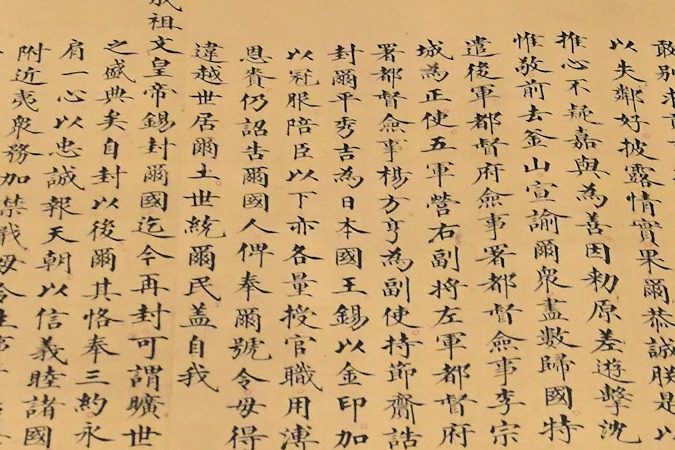 敢别求
以失鄰好披露情實果爾恭誠朕是以
推心不疑嘉與為善因勑原差遊擊沈
惟敬前去釜山宣諭爾衆盡數歸國特
遣後軍都督府僉事署都督僉事李宗
城為正使五軍營右副將左軍都督府
署都督僉事楊方亨為副使持節齎誥
封爾平秀吉為日本國王錫以金印加
以冠服陪臣以下亦各量授官職用溥
恩賚仍詔告爾國人俾奉爾號令毋得
違越世居爾土世統爾民蓋自我
成祖文皇帝錫封爾國迄今再封可謂曠世
之盛典矣自封以後爾其恪奉三約永
肩一心以忠誠報天朝以信義睦諸國
附近夷衆務加禁戢毋令生事